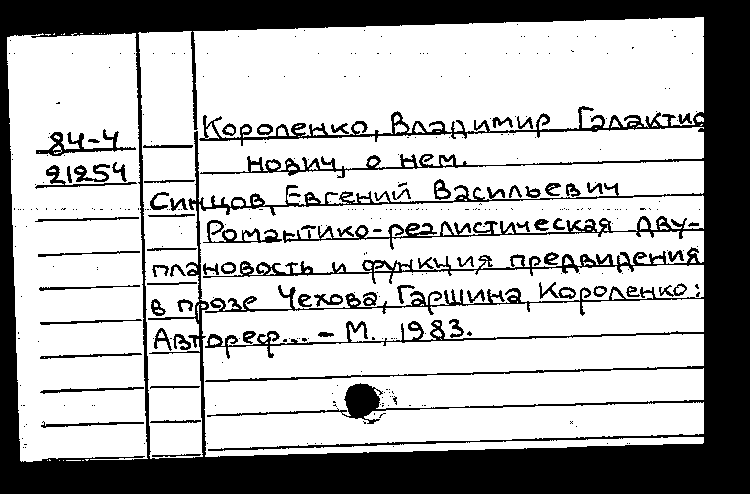 84-4
21254
Короленко, Владимир Галактио
нович, о нем.
Синцов, Евгений Васильевич
Романтико-реалистическая дву-
плановость и функция предвидения
в прозе Чехова, Гаршина, Короленко:
Автореф... - М., 1983.